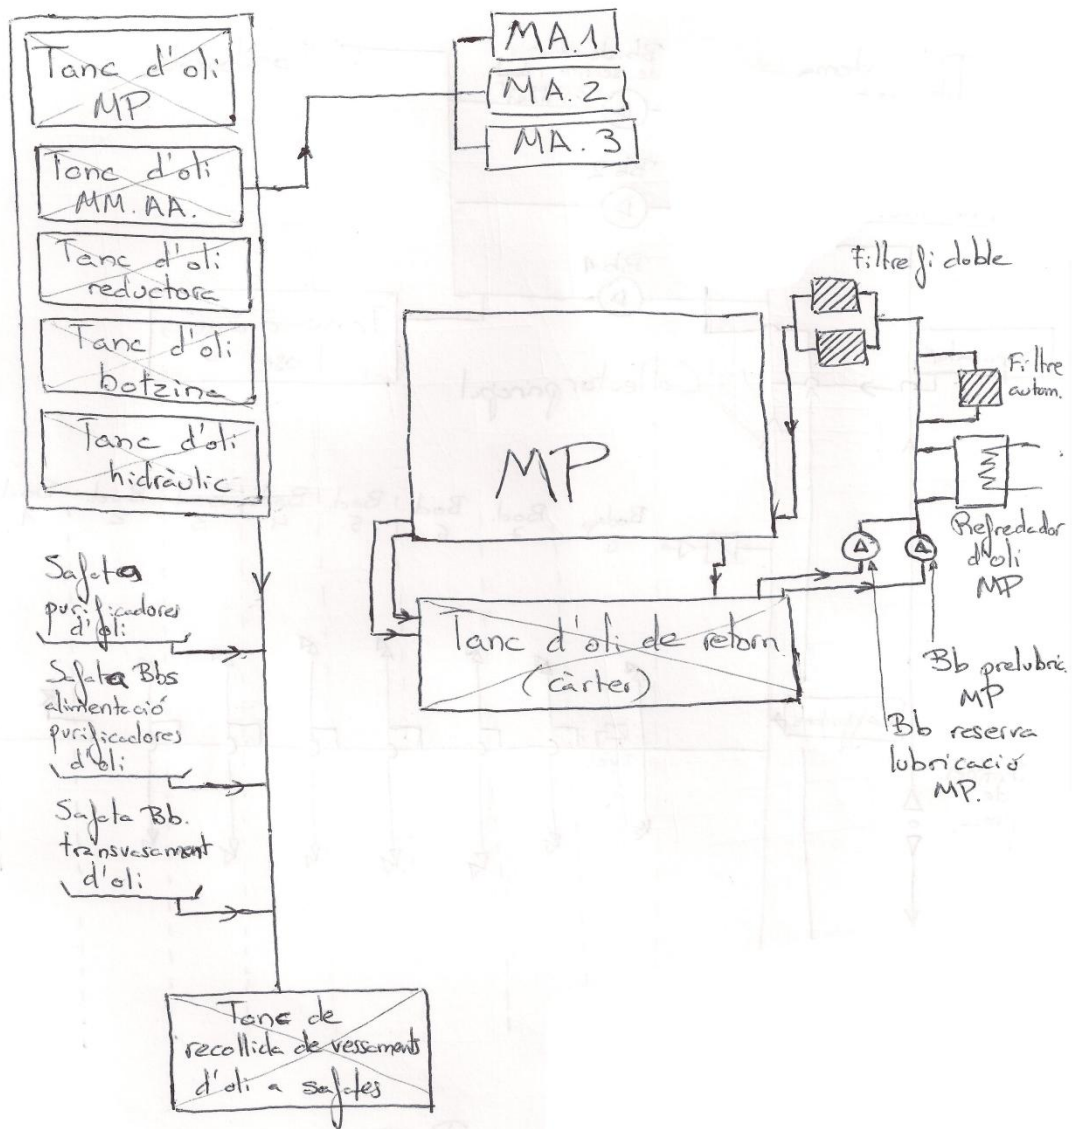 Tanc d'oli
MP
Tanc d'oli
MM. AA.
Tanc d'oli
reductora
Tanc d'oli
botzina
Tanc d'oli
hidràulic
MA.1
MA.2
MA.3
MP
Filtre fi doble
Filtre
autom.
Refredador
d'oli
MP
Tanc d'oli de retorn
(càrter)
Bb prelubric.
MP
Bb reserva
lubricació
MP.
Safata
purificadores
d'oli
Safata Bbs
alimentació
purificadores
d'oli
Safata Bb.
transvasament
d'oli
Tanc de
recollida de vessaments
d'oli a safates